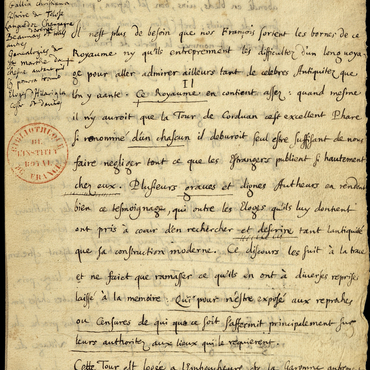 Gallia christiana
Beaumont
autres
Il n'est plus de besoin que nos François sortent les bornes de ce
Royaume ny qu'ils entreprennent les difficultez d'un long voya
ge pour aller admirer ailleurs tant de celebres Antiquitez que
l'on y vante: Ce Royaume en contient assez: quand mesme
il n'y auroit que la Tour de Corduan cest excellent Phare
si renommé d'un chascun il deburoit seul estre suffisant de nous
faire negliger tout ce que les Estrangers publient si hautement
chez eux. Plusieurs graves et dignes Autheurs en rendent
bien ce tesmoignage, qui outre les Eloges qu'ils luy donnent
ont pris à cœur d'en rechercher et descrire tant l'antiquité
que sa construction moderne. Ce discours les suit à la trace
et ne faict que ramasser ce qu'ils en ont à diverses reprises
laissé à la memoire: Qui pour n'estre exposé aux reproches
ou Censures de qui que ce soit s'affermit principalement sur
leurs authoritez aux lieux qui le requierent.
Cette Tour est logée à l'emboucheure de la Garonne
BIBLIOTHÈQUE
DE
L'INSTITUT
ROYAL
DE FRANCE